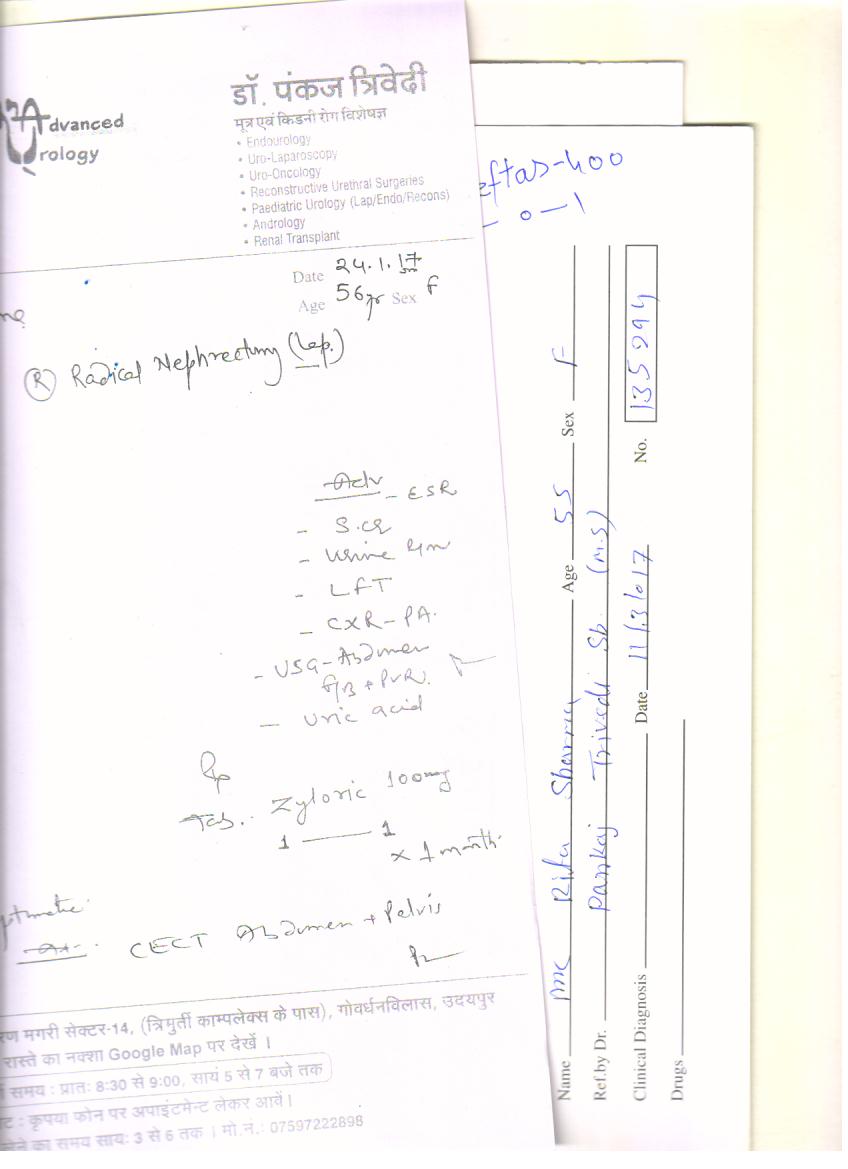 Advanced
Urology
डॉ. पंकज त्रिवेदी
मूत्र एवं किडनी रोग विशेषज्ञ
• Endourology
• Uro-Laparoscopy
• Uro-Oncology
• Reconstructive Urethral Surgeries
• Paediatric Urology (Lap/Endo/Recons)
• Andrology
• Renal Transplant
Date 24.1.17
Age 56 yr Sex F
Ⓡ Radical Nephrectomy (Lap.)
Adv
- ESR
- S.Cr
- Urine R/M
- LFT
- CXR-PA.
- USG-Abdomen
+ PVR.
- Uric acid
Rp
Tab. Zyloric 100mg
1 — 1
x 1 month
CECT Abdomen + Pelvis
मगरी सेक्टर-14, (त्रिमुर्ती काम्पलेक्स के पास), गोवर्धनविलास, उदयपुर
रास्ते का नक्शा Google Map पर देखें ।
समय : प्रातः 8:30 से 9:00, सायं 5 से 7 बजे तक
: कृपया फोन पर अपाइंटमेन्ट लेकर आवें ।
का समय सायः 3 से 6 तक । मो.नं.: 07597222898
eftas-400
- 0 - 1
Name Mrs Rita Sharma Age 55 Sex F
Ref.by Dr. Pankaj Trivedi Sb. (M.S)
Clinical Diagnosis Date 11/3/017 No. 135994
Drugs